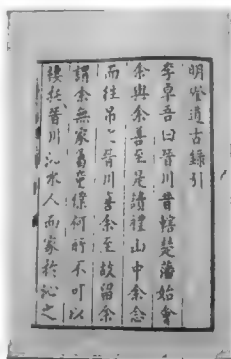 明燈道古錄引
李卓吾曰晉川昔轄楚藩始會
余與余善至是讀禮山中余念
而往弔之晉川喜余至故留余
謂余無家多壘僕何所不可以
棲托晉川沁水人而家於沁之